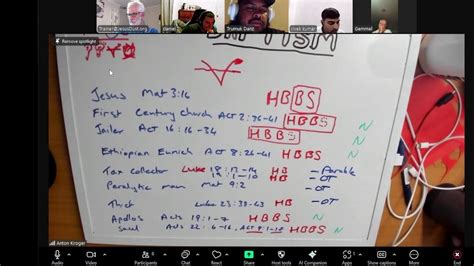 Trainer@JesusDust.org
daniel
Trumuk Danz
vivek kumar
Gemmal
Remove spotlight
BAPTISM
Jesus Mat 3:16 HBBS
First Century Church ACT 2:36-41 HBBS
Jailer ACT 16:16-34 HBBS N
Ethiopian Eunich ACT 8:26-41 HBBS N
Tax collector Luke 18:12-14 HB - Parable
19:1-10 HB - OT
Paralytic man Mat 9:2 - OT
Thief Luke 23:38-43 HB - OT
Apollos Acts 19:1-7 HBBS N
Saul Acts 22:6-16, ACT 9:1-10 HBBS N
Anton Kroger
Audio
Video
Participants
Chat
React
Share
AI Companion
Apps
Show captions
More